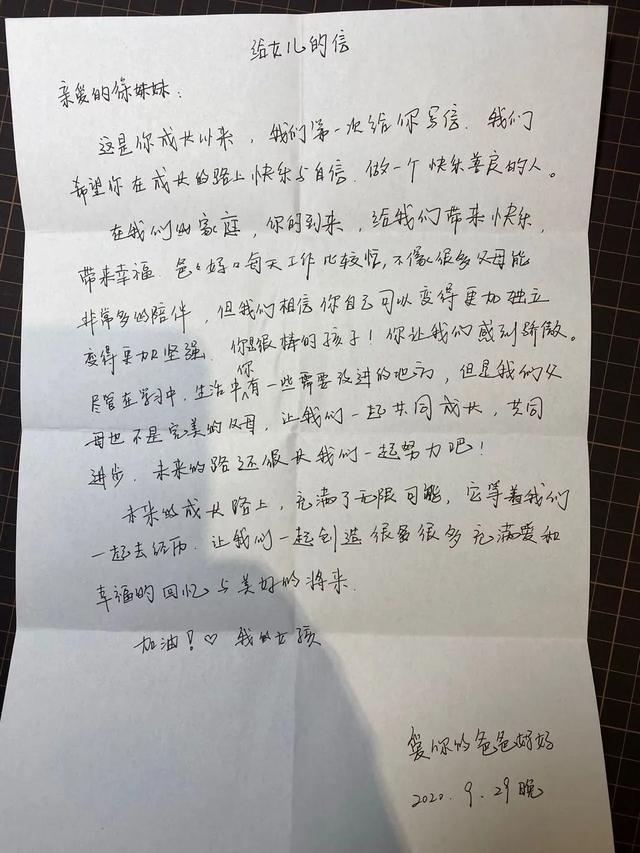 给女儿的信
亲爱的徐妹妹：
这是你成长以来，我们第一次给你写信. 我们
希望你在成长的路上快乐与自信. 做一个快乐善良的人。
在我们的家庭，你的到来，给我们带来快乐，
带来幸福. 爸〃妈〃每天工作比较忙，不像很多父母能
非常多的陪伴，但我们相信你自己可以变得更加独立
变得更加坚强. 你是很棒的孩子！你让我们感到骄傲。
尽管在学习中，生活中你有一些需要改进的地方，但是我们父
母也不是完美的父母，让我们一起共同成长，共同
进步. 未来的路还很长我们一起努力吧！
未来的成长路上，充满了无限可能，它等着我们
一起去经历. 让我们一起创造很多很多充满爱和
幸福的回忆与美好的将来.
加油！♡ 我的女孩
爱你的爸爸妈妈
2020. 9. 29晚